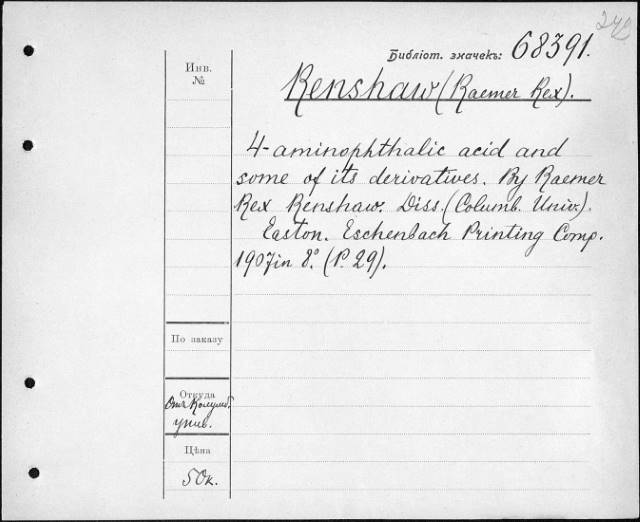 Библіот. значекъ: 68391.
Инв.
№
Renshaw (Raemer Rex).
4-aminophthalic acid and
some of its derivatives. By Raemer
Rex Renshaw. Diss. (Columb. Univ.).
Easton. Eschenbach Printing Comp.
1907 in 8.° (P. 29).
По заказу
Откуда
Отъ Колумб.
унив.
Цѣна
50к.